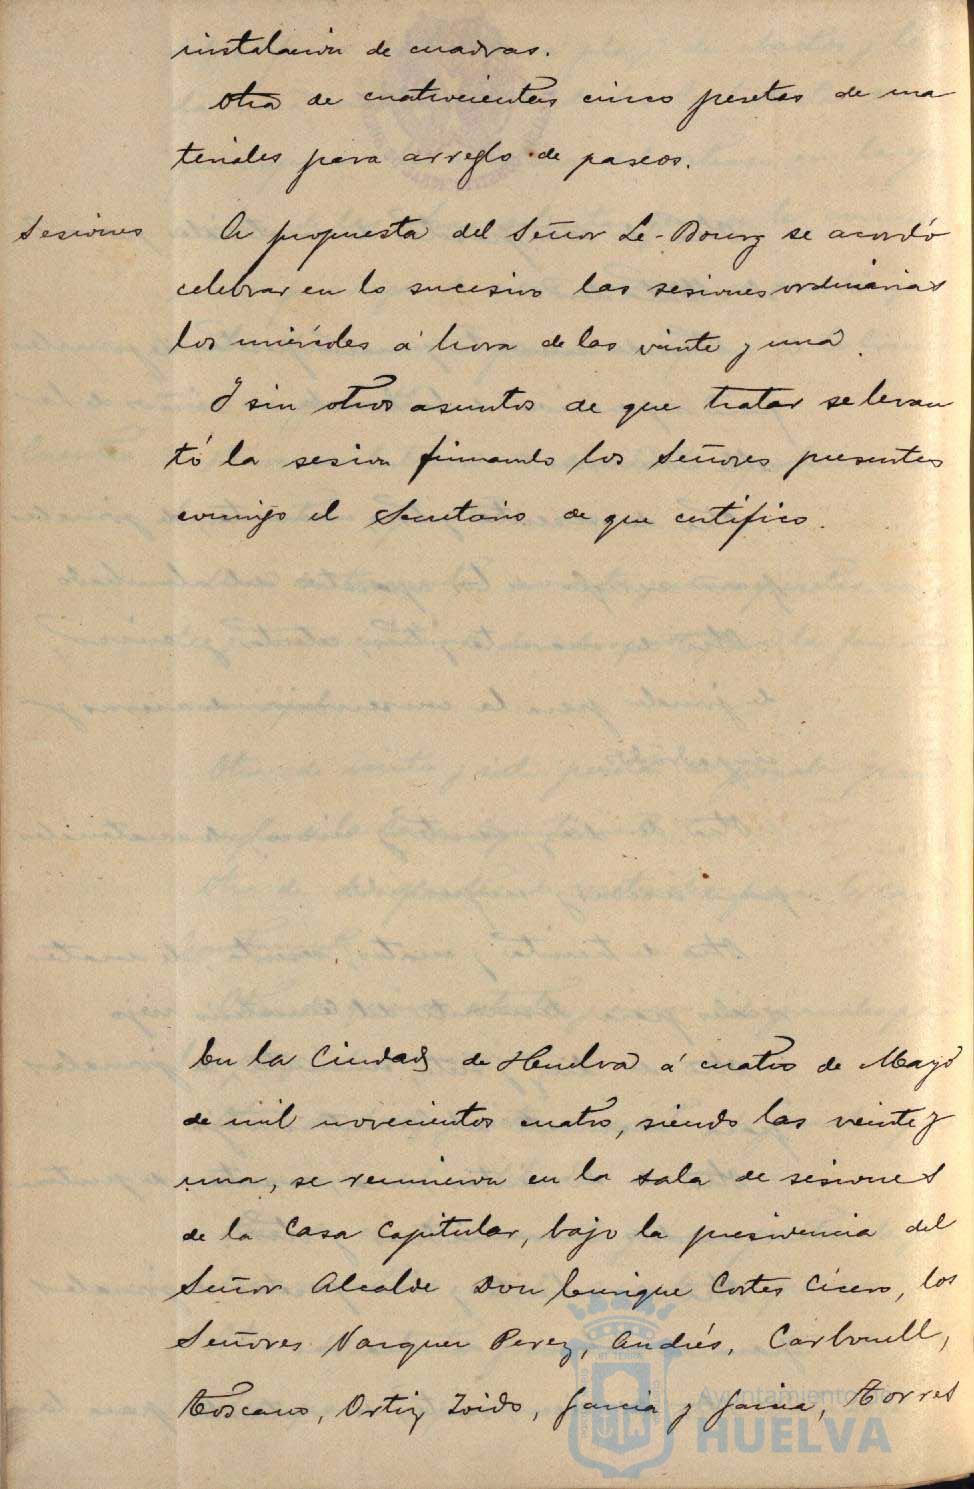 instalacion de cuadras.
Otra de cuatrocientas cinco pesetas de ma
teriales para arreglo de paseos.
Sesiones
A propuesta del Señor Le-Bourg se acordó
celebrar en lo sucesivo las sesiones ordinarias
los miércoles á hora de las veinte y una.
Y sin otros asuntos de que tratar se levan
tó la sesion firmando los Señores presentes
conmigo el Secretario de que certifico.
En la Ciudad de Huelva á cuatro de Mayo
de mil novecientos cuatro, siendo las veinte y
una, se reunieron en la sala de sesiones
de la Casa Capitular, bajo la presidencia del
Señor Alcalde Don Enrique Cortes Cicero, los
Señores Vazquez Perez, Andrés, Carbonell,
Toscano, Ortiz Zoido, Garcia y Garcia, Torres
Ayuntamiento de
HUELVA